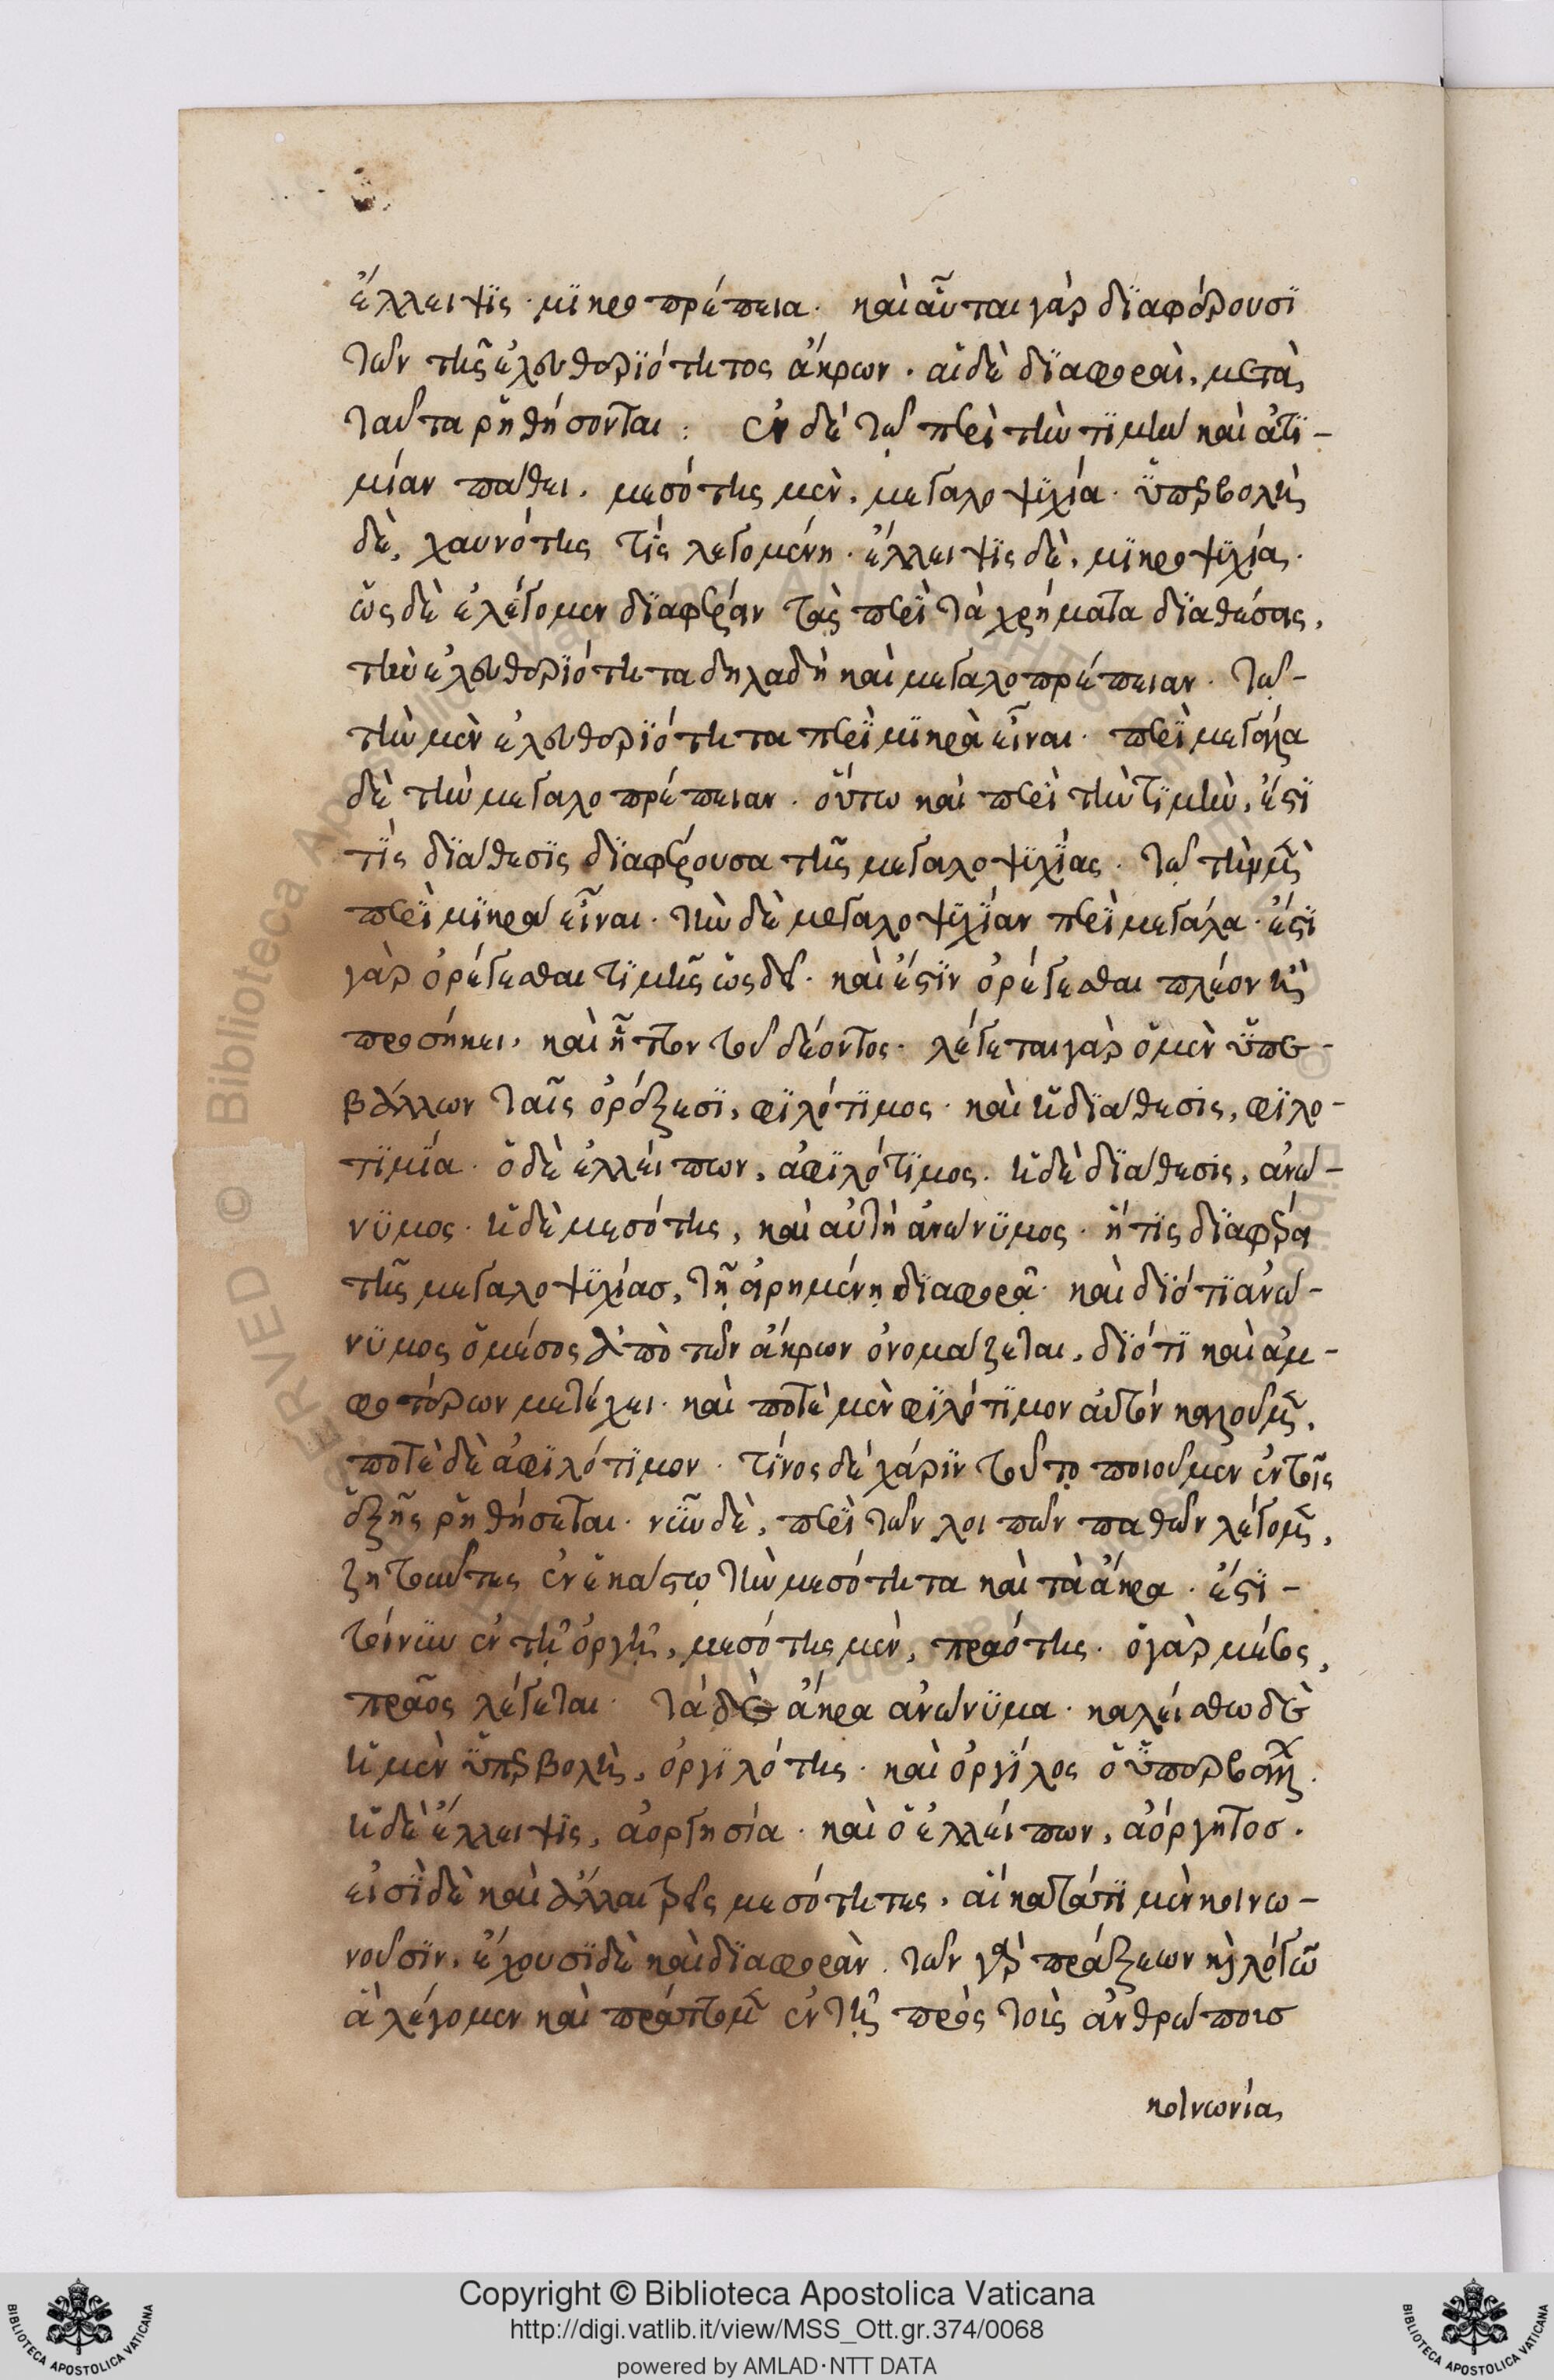 ἔλλειψϊς · μϊκροπρέπεια · καὶ αὗται γὰρ δϊαφέρουσϊ
τῶν τῆς ἐλευθερϊότητος ἄκρων · αἱ δὲ δϊαφοραὶ, μετὰ
ταῦτα ῥηθήσονται : Ἐν δὲ τῷ περὶ τὴν τϊμὴν καὶ ἀτϊ-
μίαν πάθει, μεσότης μὲν, μεγαλοψϋχία · ὑπερβολὴ
δὲ, χαυνότης τὶς λεγομένη · ἔλλειψϊς δὲ, μϊκροψϋχία ·
ὡς δὲ ἐλέγομεν δϊαφέρειν τὰς περὶ τὰ χρήματα δϊαθέσεις,
τὴν ἐλευθερϊότητα δηλαδὴ καὶ μεγαλοπρέπειαν · τῷ-
τὴν μὲν ἐλευθερϊότητα περὶ μϊκρὰ εἶναι · περὶ μεγάλα
δὲ τὴν μεγαλοπρέπειαν · οὕτω καὶ περὶ τὴν τϊμὴν, ἔστϊ
τϊς δϊάθεσϊς δϊαφέρουσα τῆς μεγαλοψϋχΐας · τῷ τὴν μὲν
περὶ μϊκρὰ εἶναι · τὴν δὲ μεγαλοψϋχΐαν περὶ μεγάλα · ἔστϊ
γὰρ ὀρέγεσθαι τϊμῆς ὡς δεῖ · καὶ ἔστϊν ὀρέγεσθαι πλέον ἢ
προσήκει, καὶ ἧττον τοῦ δέοντος · λέγεται γὰρ ὁ μὲν ὑπερ-
βάλλων ταῖς ὀρέξεσϊ, φϊλότϊμος · καὶ ἡ δϊάθεσις, φϊλο-
τϊμΐα · ὁ δὲ ἐλλείπων, ἀφϊλότϊμος · ἡ δὲ δϊάθεσις, ἀνώ-
νϋμος · ἡ δὲ μεσότης, καὶ αὐτὴ ἀνώνϋμος · ἥτϊς δϊαφέρει
τῆς μεγαλοψϋχίασ, τῇ εἰρημένῃ δϊαφορᾷ · καὶ δϊότϊ ἀνώ-
νϋμος ὁ μέσος ἀπὸ τῶν ἄκρων ὀνομάζεται, δϊότϊ καὶ ἀμ-
φοτέρων μετέχει · καὶ ποτὲ μὲν φϊλότϊμον αὐτὸν καλοῦμεν,
ποτὲ δὲ ἀφϊλότϊμον · τίνος δὲ χάρϊν τοῦτο ποιοῦμεν ἐν τοῖς
ἑξῆς ῥηθήσεται · νῦν δὲ, περὶ τῶν λοιπῶν παθῶν λέγομεν,
ζητοῦντες ἐν ἑκάστῳ τὴν μεσότητα καὶ τὰ ἄκρα · ἔστϊ-
τοίνυν ἐν τῇ ὀργῇ, μεσότης μὲν, πραότης · ὁ γὰρ μέσος,
πρᾶος λέγεται · τὰ δὲ ἄκρα ἀνώνϋμα · καλείσθω δὲ
ἡ μὲν ὑπερβολὴ, ὀργϊλότης · καὶ ὀργΐλος ὁ ὑπερβάλλων ·
ἡ δὲ ἔλλειψϊς, ἀοργησία · καὶ ὁ ἐλλείπων, ἀόργητοσ ·
εἰσὶ δὲ καὶ ἄλλαι τρεῖς μεσότητες, αἳ κατά τϊ μὲν κοινω-
νοῦσϊν, ἔχουσϊ δὲ καὶ δϊαφορὰν · τῶν γὰρ πράξεων καὶ λόγων
ἃ λέγομεν καὶ πράττομεν ἐν τῇ πρὸς τοὶς ἀνθρώποισ
κοινωνία